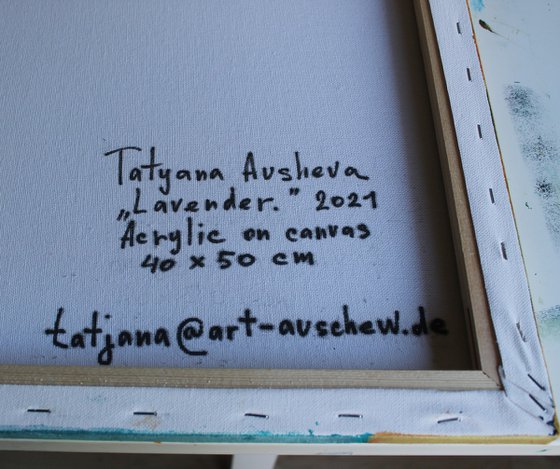 Tatyana Ausheva
„Lavender.” 2021
Acrylic on canvas
40 x 50 cm
tatjana@art-auschew.de